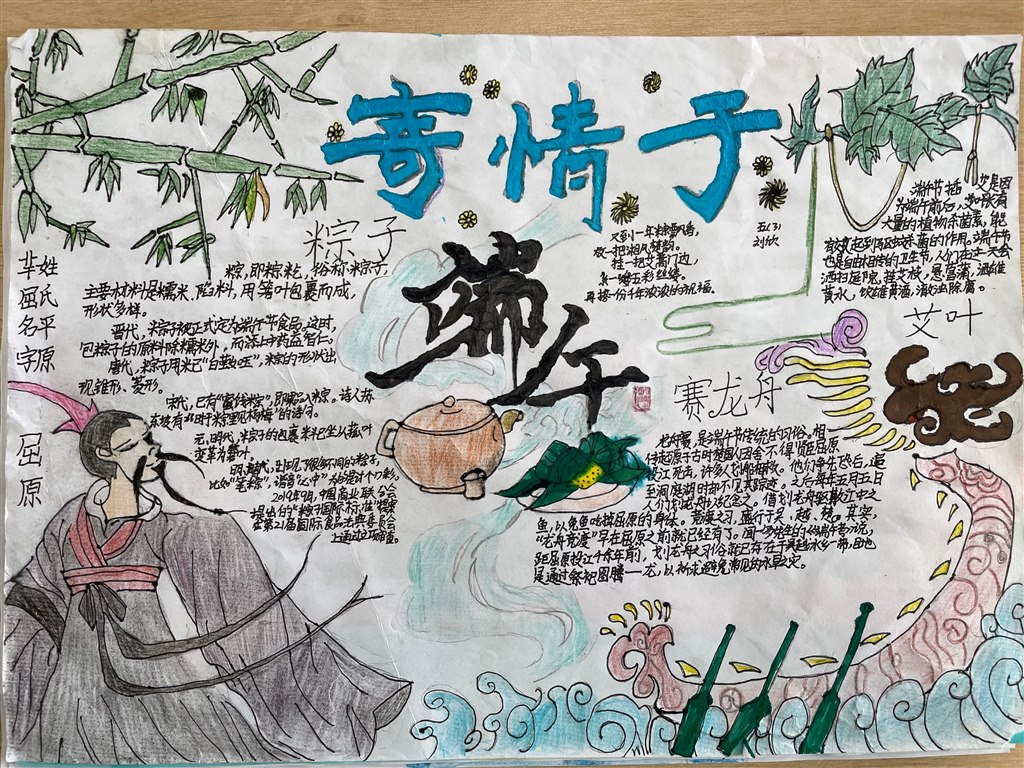 寄情于
端午
五(3)
刘欣
又到一年粽飘香，
放一把湘风楚韵。
挂一把艾蒿门边，
系一缕五彩丝线。
再接一份千年浓浓的祝福。
粽子
粽，即粽籺，俗称粽子，
主要材料是糯米、馅料，用箬叶包裹而成，
形状多样。
晋代，粽子被正式定为端午节食品。这时，
包粽子的原料除糯米外，而添上中药益智仁。
唐代，粽子用米已"白莹如玉"，粽的形状出
现锥形、菱形。
宋代，已有"蜜饯粽"，即果品入粽。诗人苏
东坡有"时于粽里见杨梅"的诗句。
元、明代，粽子的包裹料已坐从菰叶
变革为箬叶。
明清代，出现了很多不同的粽子，
2019年9月，中国商业联合会
提出的"粽子国际标准"提案
在第21届国际食品法典委员会
上通过立项审查。
芈姓
屈氏
名平
字原
屈
原
端午节插艾是因
大量的植物杀菌素，能
有效起到
也是自古相传的卫生节，人们在这一天会
洒扫庭院，挂艾枝，悬菖蒲，洒雄
黄水，饮雄黄酒，激浊除腐。
艾叶
赛龙舟
龙舟赛，是端午节传统的习俗。相
传起源于古时楚国人因舍不得贤臣屈原
投江死去，许多人划船相救。他们争先恐后，追
至洞庭湖时却不见其踪迹。之后每年五月五日
人们划龙舟以纪念之。借划龙舟驱散江中之
鱼，以免鱼吃掉屈原的身体。竞渡之习，盛行于吴、越、楚。其实，
"龙舟竞渡"早在屈原之前就已经有了。闻一多先生的《端午考》说，
距屈原投江千余年前，划龙舟之习俗就已存在于吴越水乡一带，目的
是通过祭祀图腾——龙，以祈求避免常见的水旱之灾。